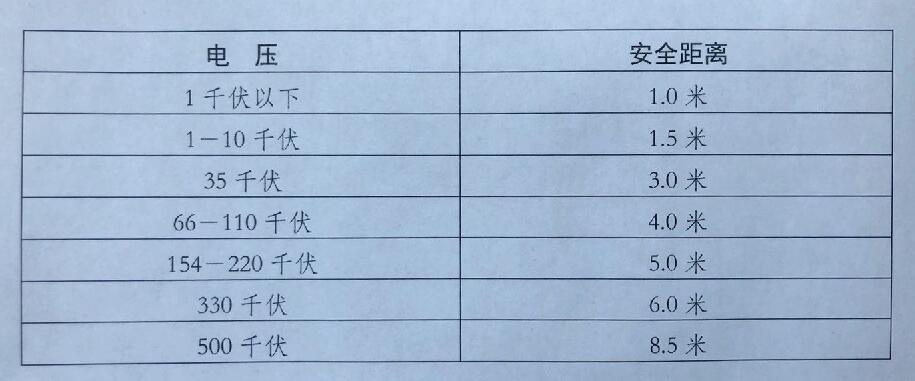 电 压 安全距离
1千伏以下 1.0 米
1－10 千伏 1.5 米
35 千伏 3.0 米
66－110 千伏 4.0 米
154－220 千伏 5.0 米
330 千伏 6.0 米
500 千伏 8.5 米